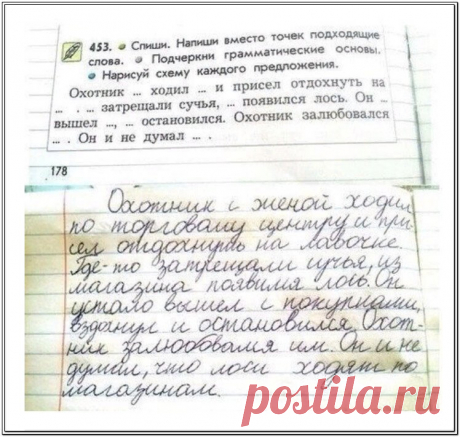 453. Спиши. Напиши вместо точек подходящие
слова. Подчеркни грамматические основы.
Нарисуй схему каждого предложения.
Охотник ... ходил ... и присел отдохнуть на
... . ... затрещали сучья, ... появился лось. Он ...
вышел ..., ... остановился. Охотник залюбовался
... . Он и не думал ... .
178
Охотник с женой ходил
по торговому центру и при-
сел отдохнуть на лавочке.
Где-то затрещали сучья, из
магазина появился лось. Он
устало вышел с покупками,
вздохнул и остановился. Охот-
ник залюбовался им. Он и не
думал, что лоси ходят по
магазинам.
postila.ru